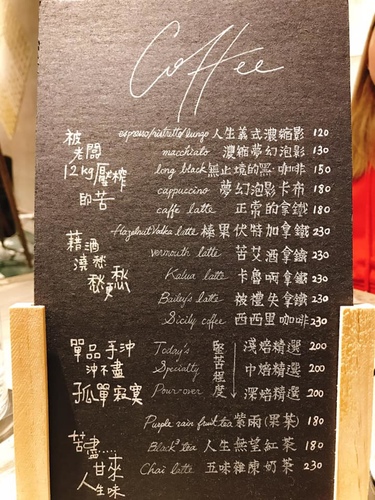 Coffee
被
老闆
12kg壓榨
的苦
espresso/ristretto/lungo 人生義式濃縮影 120
macchiato 濃縮夢幻泡影 130
long black 無止境的黑咖啡 150
cappuccino 夢幻泡影卡布 180
caffe latte 正常的拿鐵 180
藉酒
澆愁
愁更愁
Hazelnut Vodka latte 榛果伏特加拿鐵 230
vermouth latte 苦艾酒拿鐵 230
Kalua latte 卡魯哇拿鐵 230
Bailey's latte 被禮失拿鐵 230
Sicily coffee 西西里咖啡 230
單品手沖
沖不盡
孤單寂寞
Today's
Specialty
Pour-over
堅苦程度
淺焙精選 200
中焙精選 200
深焙精選 200
苦盡....
甘來
人生味
Purple rain fruit tea 紫雨(果茶) 180
Black tea 人生無望紅茶 180
Chai latte 五味雜陳奶茶 230